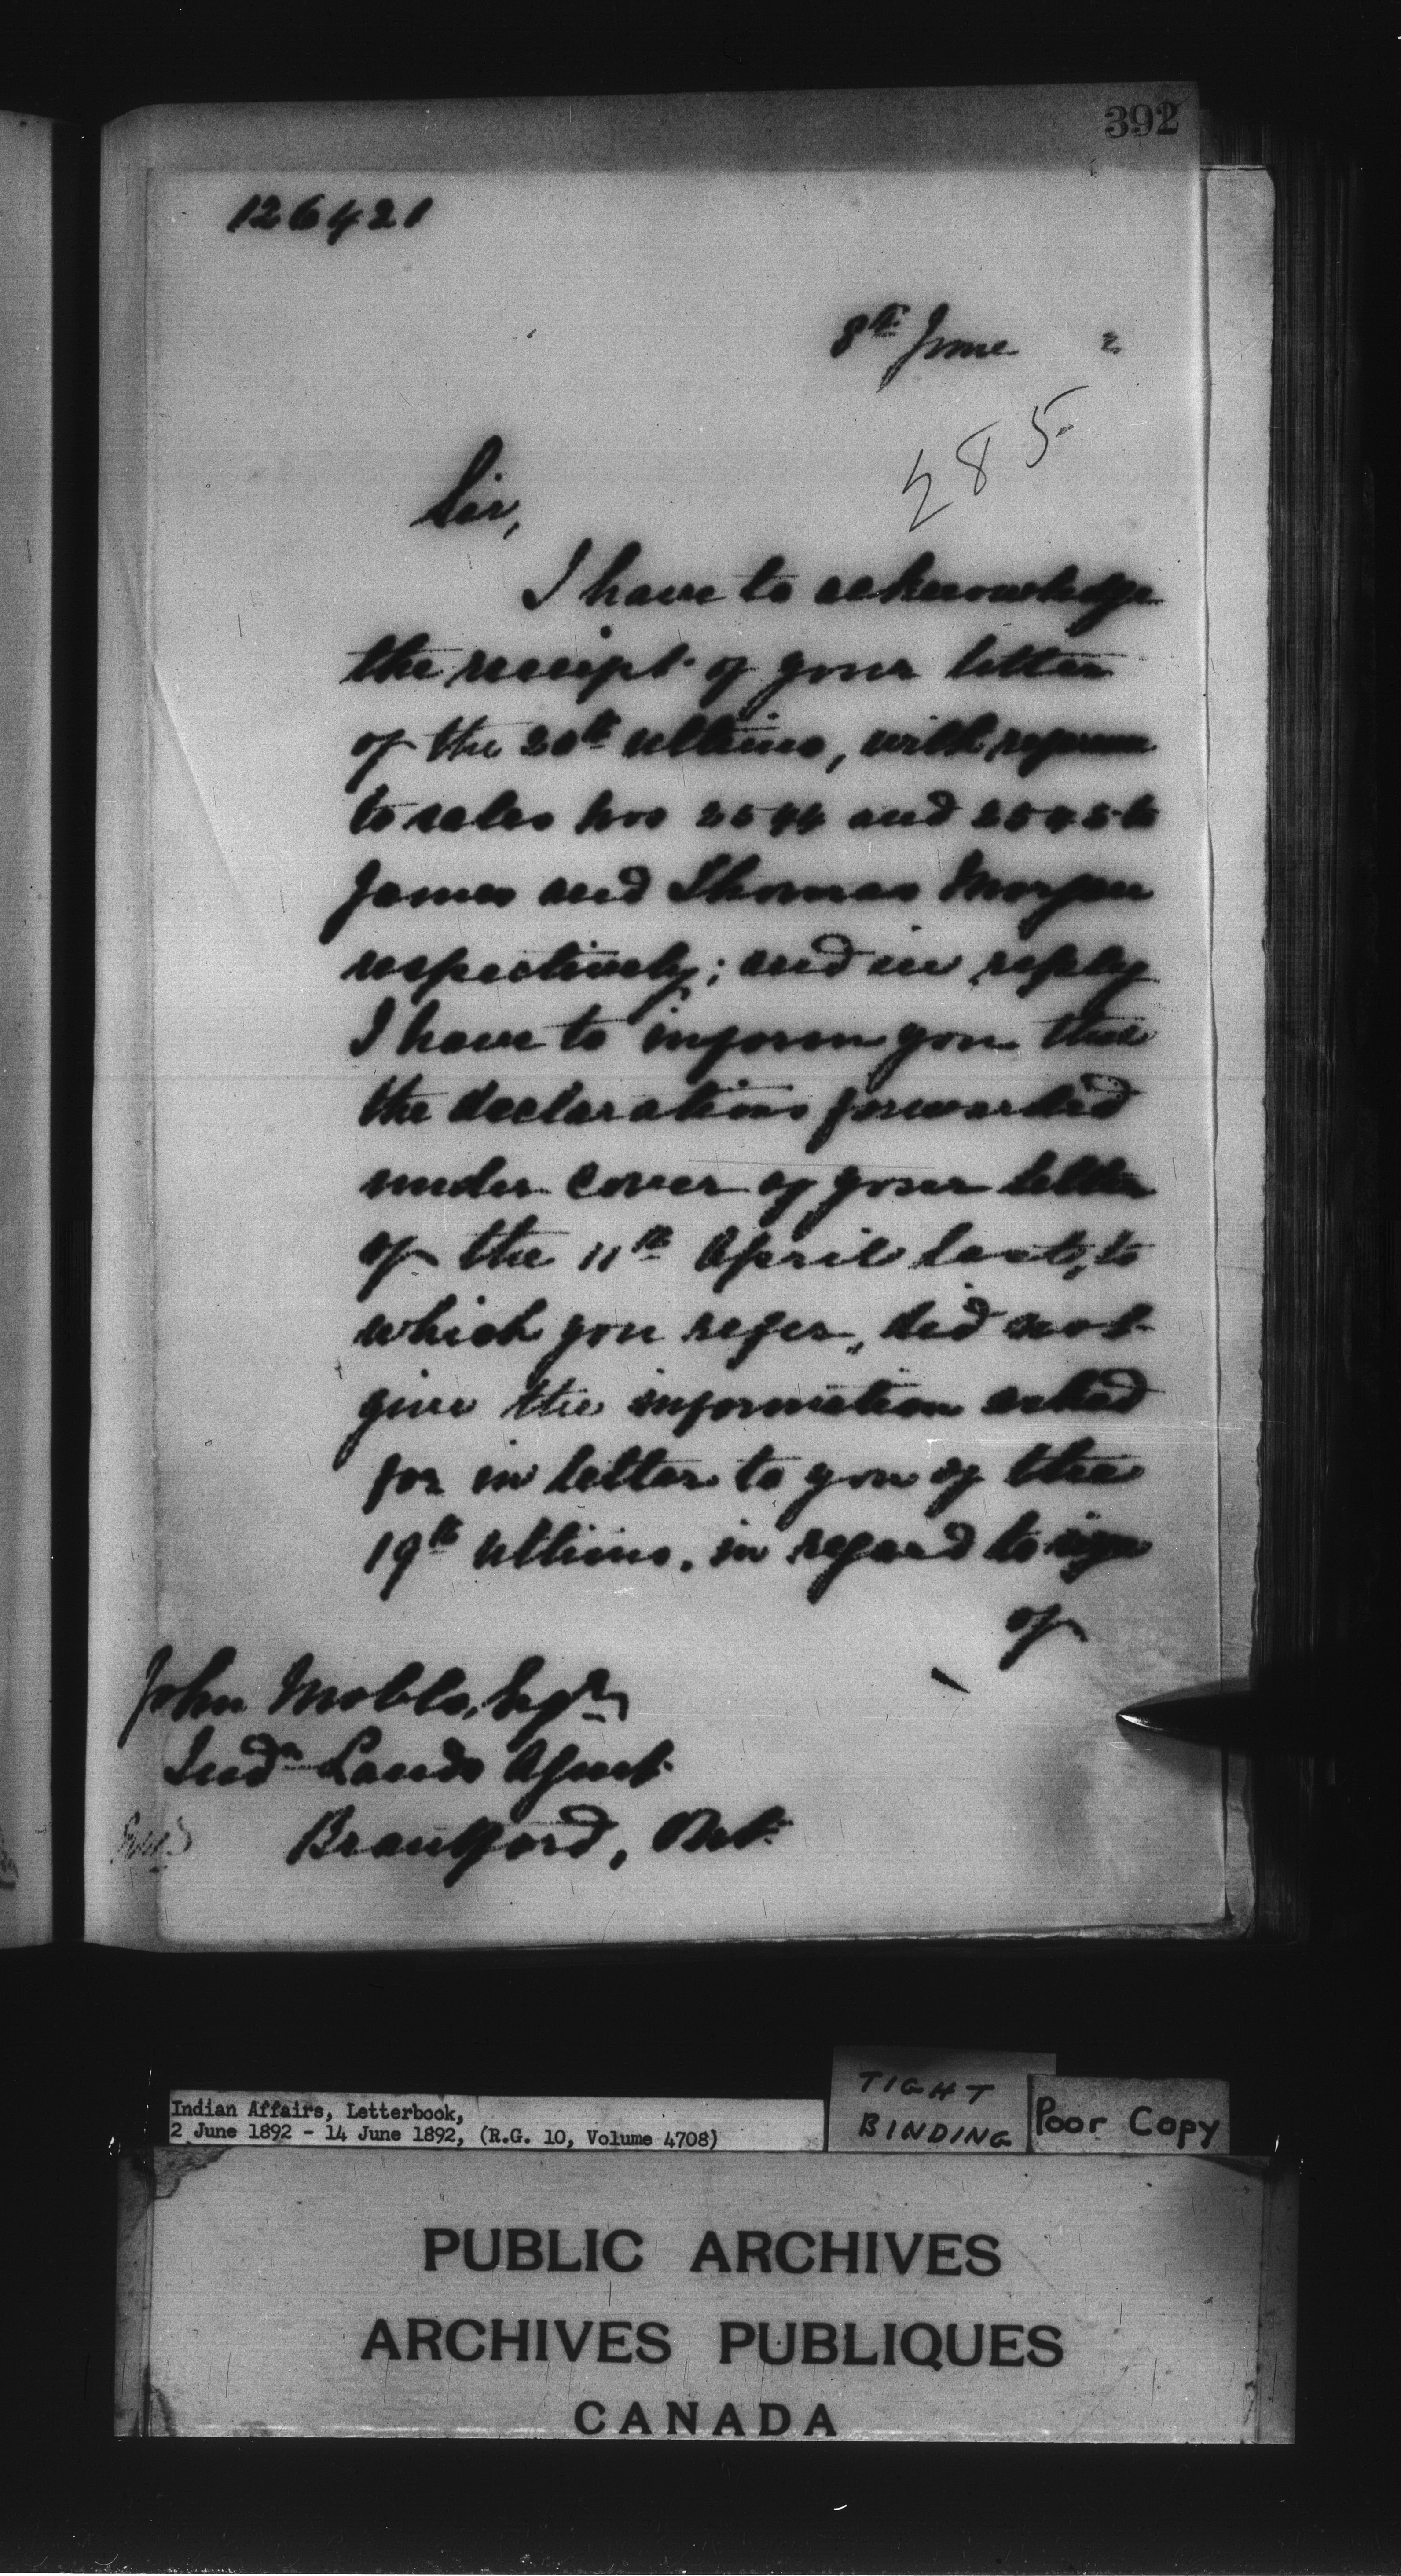 392
126421
8th June 2
285
Sir,
I have to acknowledge
the receipt of your letter
of the 20th ultimo, with reference
to sales Nos 2544 and 2545 to
James and Thomas Morgan
respectively; and in reply
I have to inform you that
the declarations forwarded
under cover of your letter
of the 11th April last, to
which you refer, did not
give the information asked
for in letter to you of the
19th ultimo, in regard to
of
John Esqr
Indn Lands Agent
Brantford, Ont.
Indian Affairs, Letterbook,
2 June 1892 - 14 June 1892, (R.G. 10, Volume 4708)
TIGHT
BINDING
Poor Copy
PUBLIC ARCHIVES
ARCHIVES PUBLIQUES
CANADA